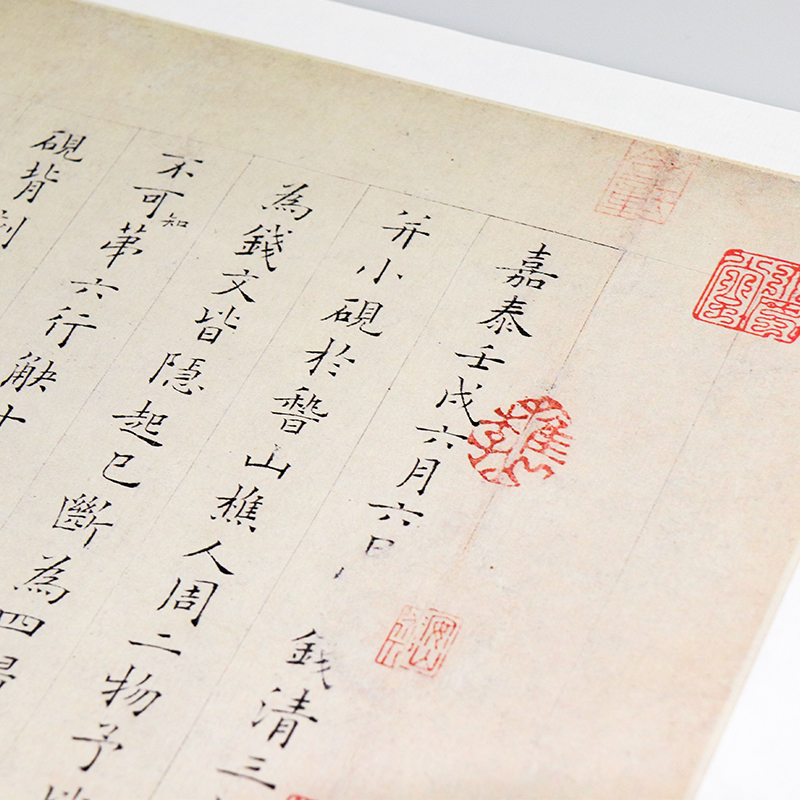 嘉泰壬戌六月六日 錢清三
并小硯於稽山樵人周二物予
為錢文皆隱起已斷為四歸
不可知苐六行缺十
硯背刻